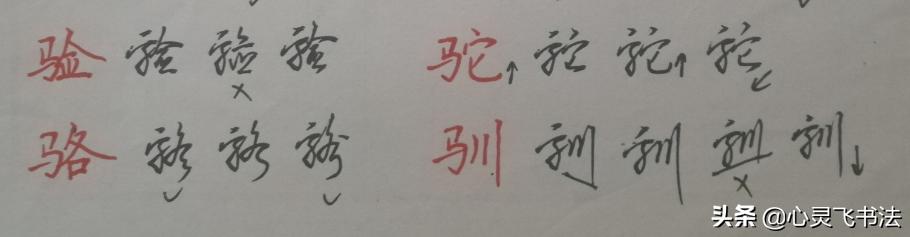 验 验 验 验 驼 驼 驼 驼
骆 骆 骆 骆 驯 驯 驯 驯 驯
头条 @心灵飞书法